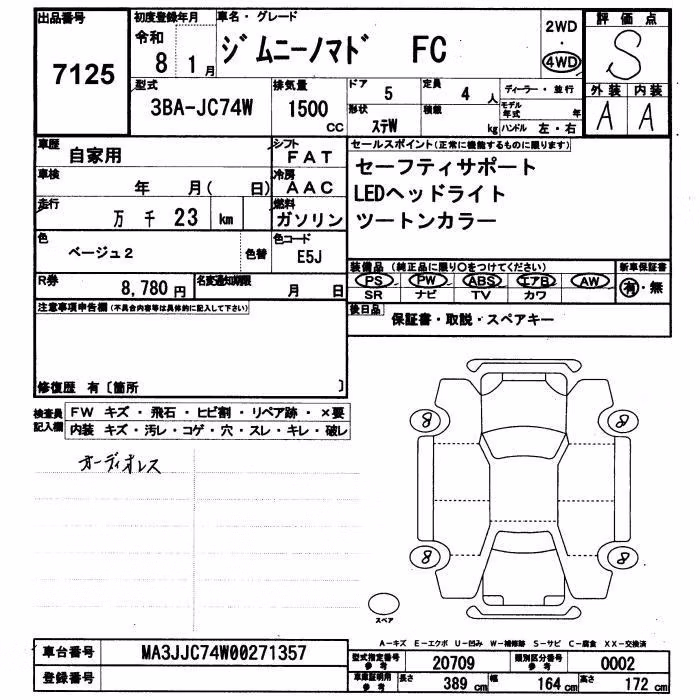 出品番号 7125
初度登録年月 令和 8 1月
車名・グレード ジムニーノマド FC
2WD・4WD
評価点 S
外装 A 内装 A
型式 3BA-JC74W
排気量 1500 cc
ドア 5
定員 4 人
形状 ステW
積載 kg
ディーラー・並行
モデル年式 年
ハンドル 左・右
車歴 自家用
シフト FAT
車検 年 月( 日)
冷房 AAC
走行 万千 23 km
燃料 ガソリン
色 ベージュ2 色替
色コード E5J
R券 8,780円
名変通知期限 月 日
セールスポイント(正常に機能するものに限ります)
セーフティサポート
LEDヘッドライト
ツートンカラー
装備品 (純正品に限り○をつけてください)
PS PW ABS エアB AW
SR ナビ TV カワ
新車保証書 有・無
後日品 保証書・取説・スペアキー
注意事項申告欄(不具合内容等は具体的に記入して下さい)
修復歴 有〔箇所 〕
検査員記入欄
FW キズ・飛石・ヒビ割・リペア跡・×要
内装 キズ・汚レ・コゲ・穴・スレ・キレ・破レ
オーディオレス
8 8
8 8
スペア
A-キズ E-エクボ U-凹み W-補修跡 S-サビ C-腐食 XX-交換済
車台番号 MA3JJC74W00271357
登録番号
型式指定番号 参考 20709
類別区分番号 参考 0002
車庫証明用 参考 長さ 389 cm 幅 164 cm 高さ 172 cm